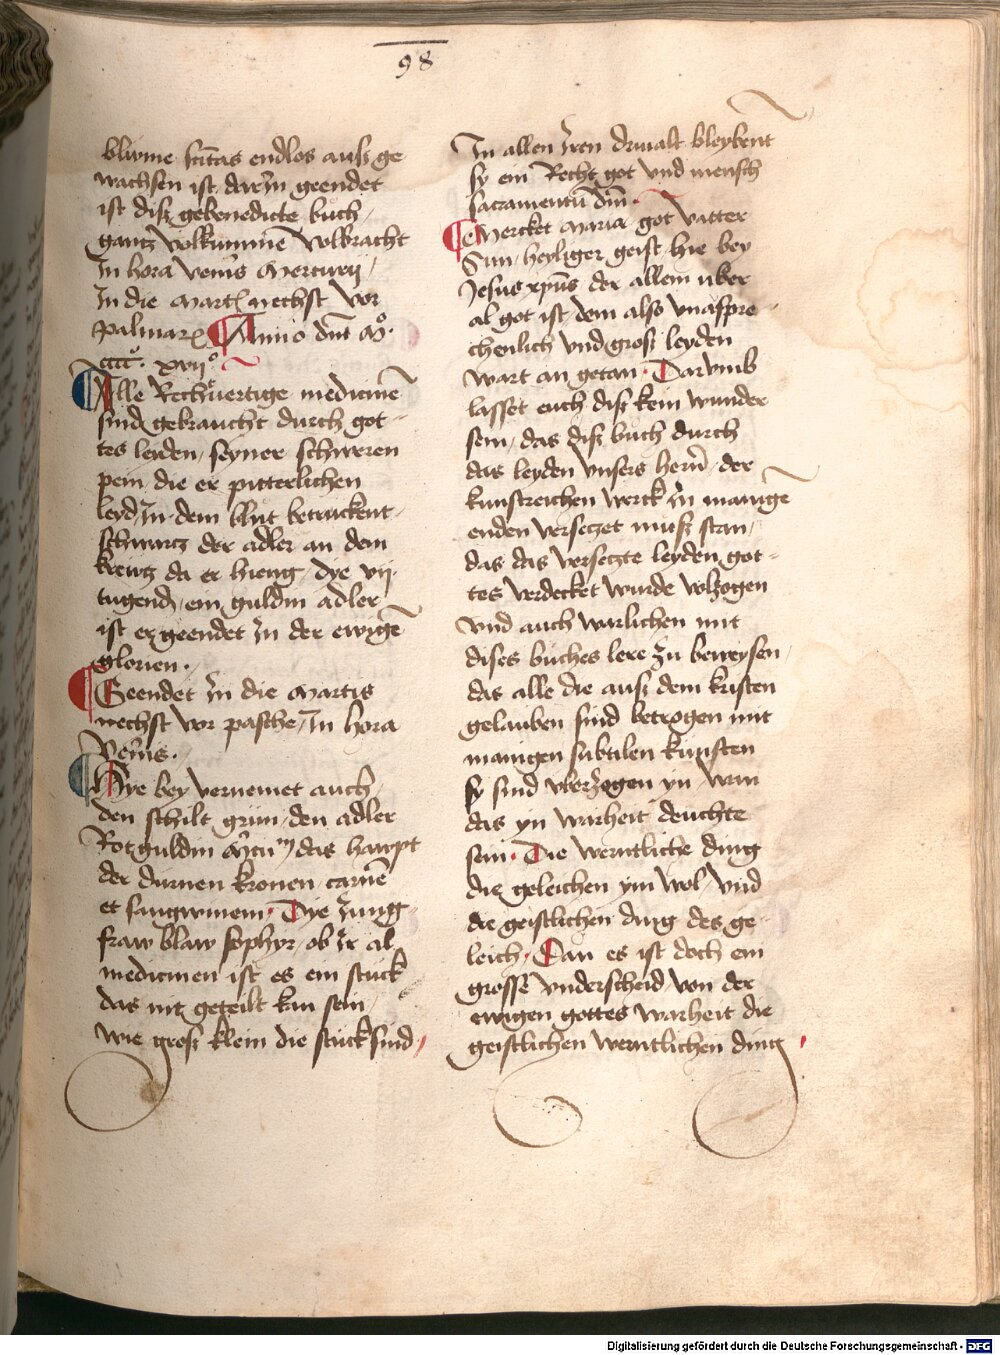 98
blume sctitas endlos ausz ge
wachsen ist darjn geendet
ist disz gebenedicte buch,
gantz volkummē volbracht
In hora veneris Mercurij,
In die Martis nechst vor
palmarum Anno dni Mo.
cccco. xvijo.
Alle Rechuertige medicinē
sind gebraucht durch got-
tes leyden, seyner schweren
pein die er pitterlichen
leyd, In dem blut betruckent.
schwartz der adler an dem
kreutz da er hieng, dye vij.
tugend, ein guldin adler
ist er geendet jn der ewigē
glorien.
Geendet jn die Martis
nechst vor pasche, In hora
Veneris.
Hye bey vernemet auch,
den schilt grün, den adler
Rot guldin das haupt
der durnen kronen carnē
et sangwinem. Dye Jung-
fraw blaw saphyr, ob jr al
medicinen ist es ein stuck
das nit geteilt kan sein,
wie grosz klein die stuck sind,
In allen jren drualt bleybent
sy ein Recht got vnd mensch
sacramentū dni.
Mercket Maria got vatter
Sun, heyliger geist, hie bey
Jesus xpus der allem uber
al got ist dem also vnaspre-
chenlich vnd grosz leyden
wart an getan. Darvmb
lasset euch disz kein wunder
sein, das disz buch durch
das leyden vnsers hern, der
kunstreichen werck jn manigē
enden versetzet musz stan,
das das versetzte leyden got-
tes verdecket wurde volzogen
vnd auch warlichen mit
dises buches lere zu beweysen,
das alle die ausz dem kristen
gelauben sind betrogen mit
manigen subtilen kunsten
sy sind vberzogen yn, wan
das yn warheit deuchte
sein. Die werntliche ding
die geleichen ym wol, vnd
die geistlichen ding des ge-
leich. Dan es ist doch ein
grosse vnderscheid von der
ewigen gottes warheit die
geistlichen werntlichen ding
Digitalisierung gefördert durch die Deutsche Forschungsgemeinschaft - DFG